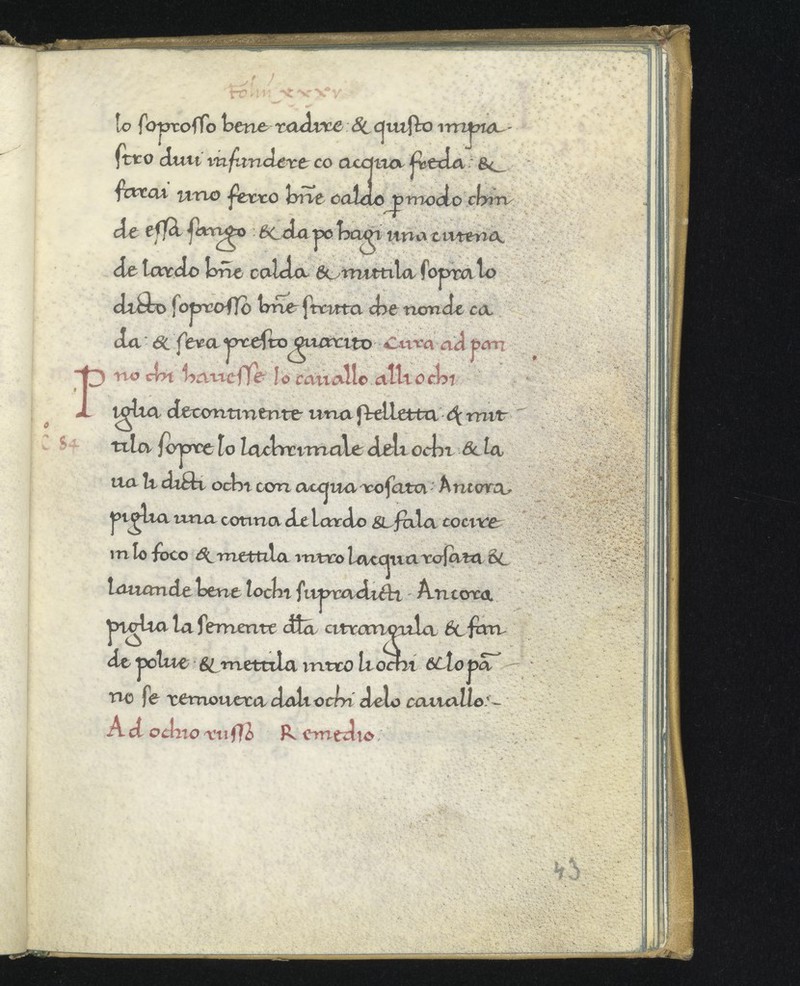 foliu xxxv
lo soprosso bene radire & quisto impia-
stro duu infundere co acqua freda· &
farai uno ferro bn̄e caldo ꝑ modo chin
de essa sango· & da po hagi una cutena
de lardo bn̄e calda & mittila sopra lo
dicto soprosso bn̄e strutta che non de ca
da· & sera presto guarito Cura ad pan
no chi havesse lo cavallo alli ochi
Piglia decontinente una stelletta & mit
c̊ 84
tila sopre lo lachrimale deli ochi & la
ua li dicti ochi con acqua rosata· Ancora
piglia una cotina de lardo & fala cocire
in lo foco & mettila intro lacqua rosata &
lauande bene lochi supradicti· Ancora
piglia la semente dl̄la citrangula & fan
de polue & mettila intro li ochi & lo pā
no se removera dali ochi delo cauallo:-
Ad ochio russo Remedio
43